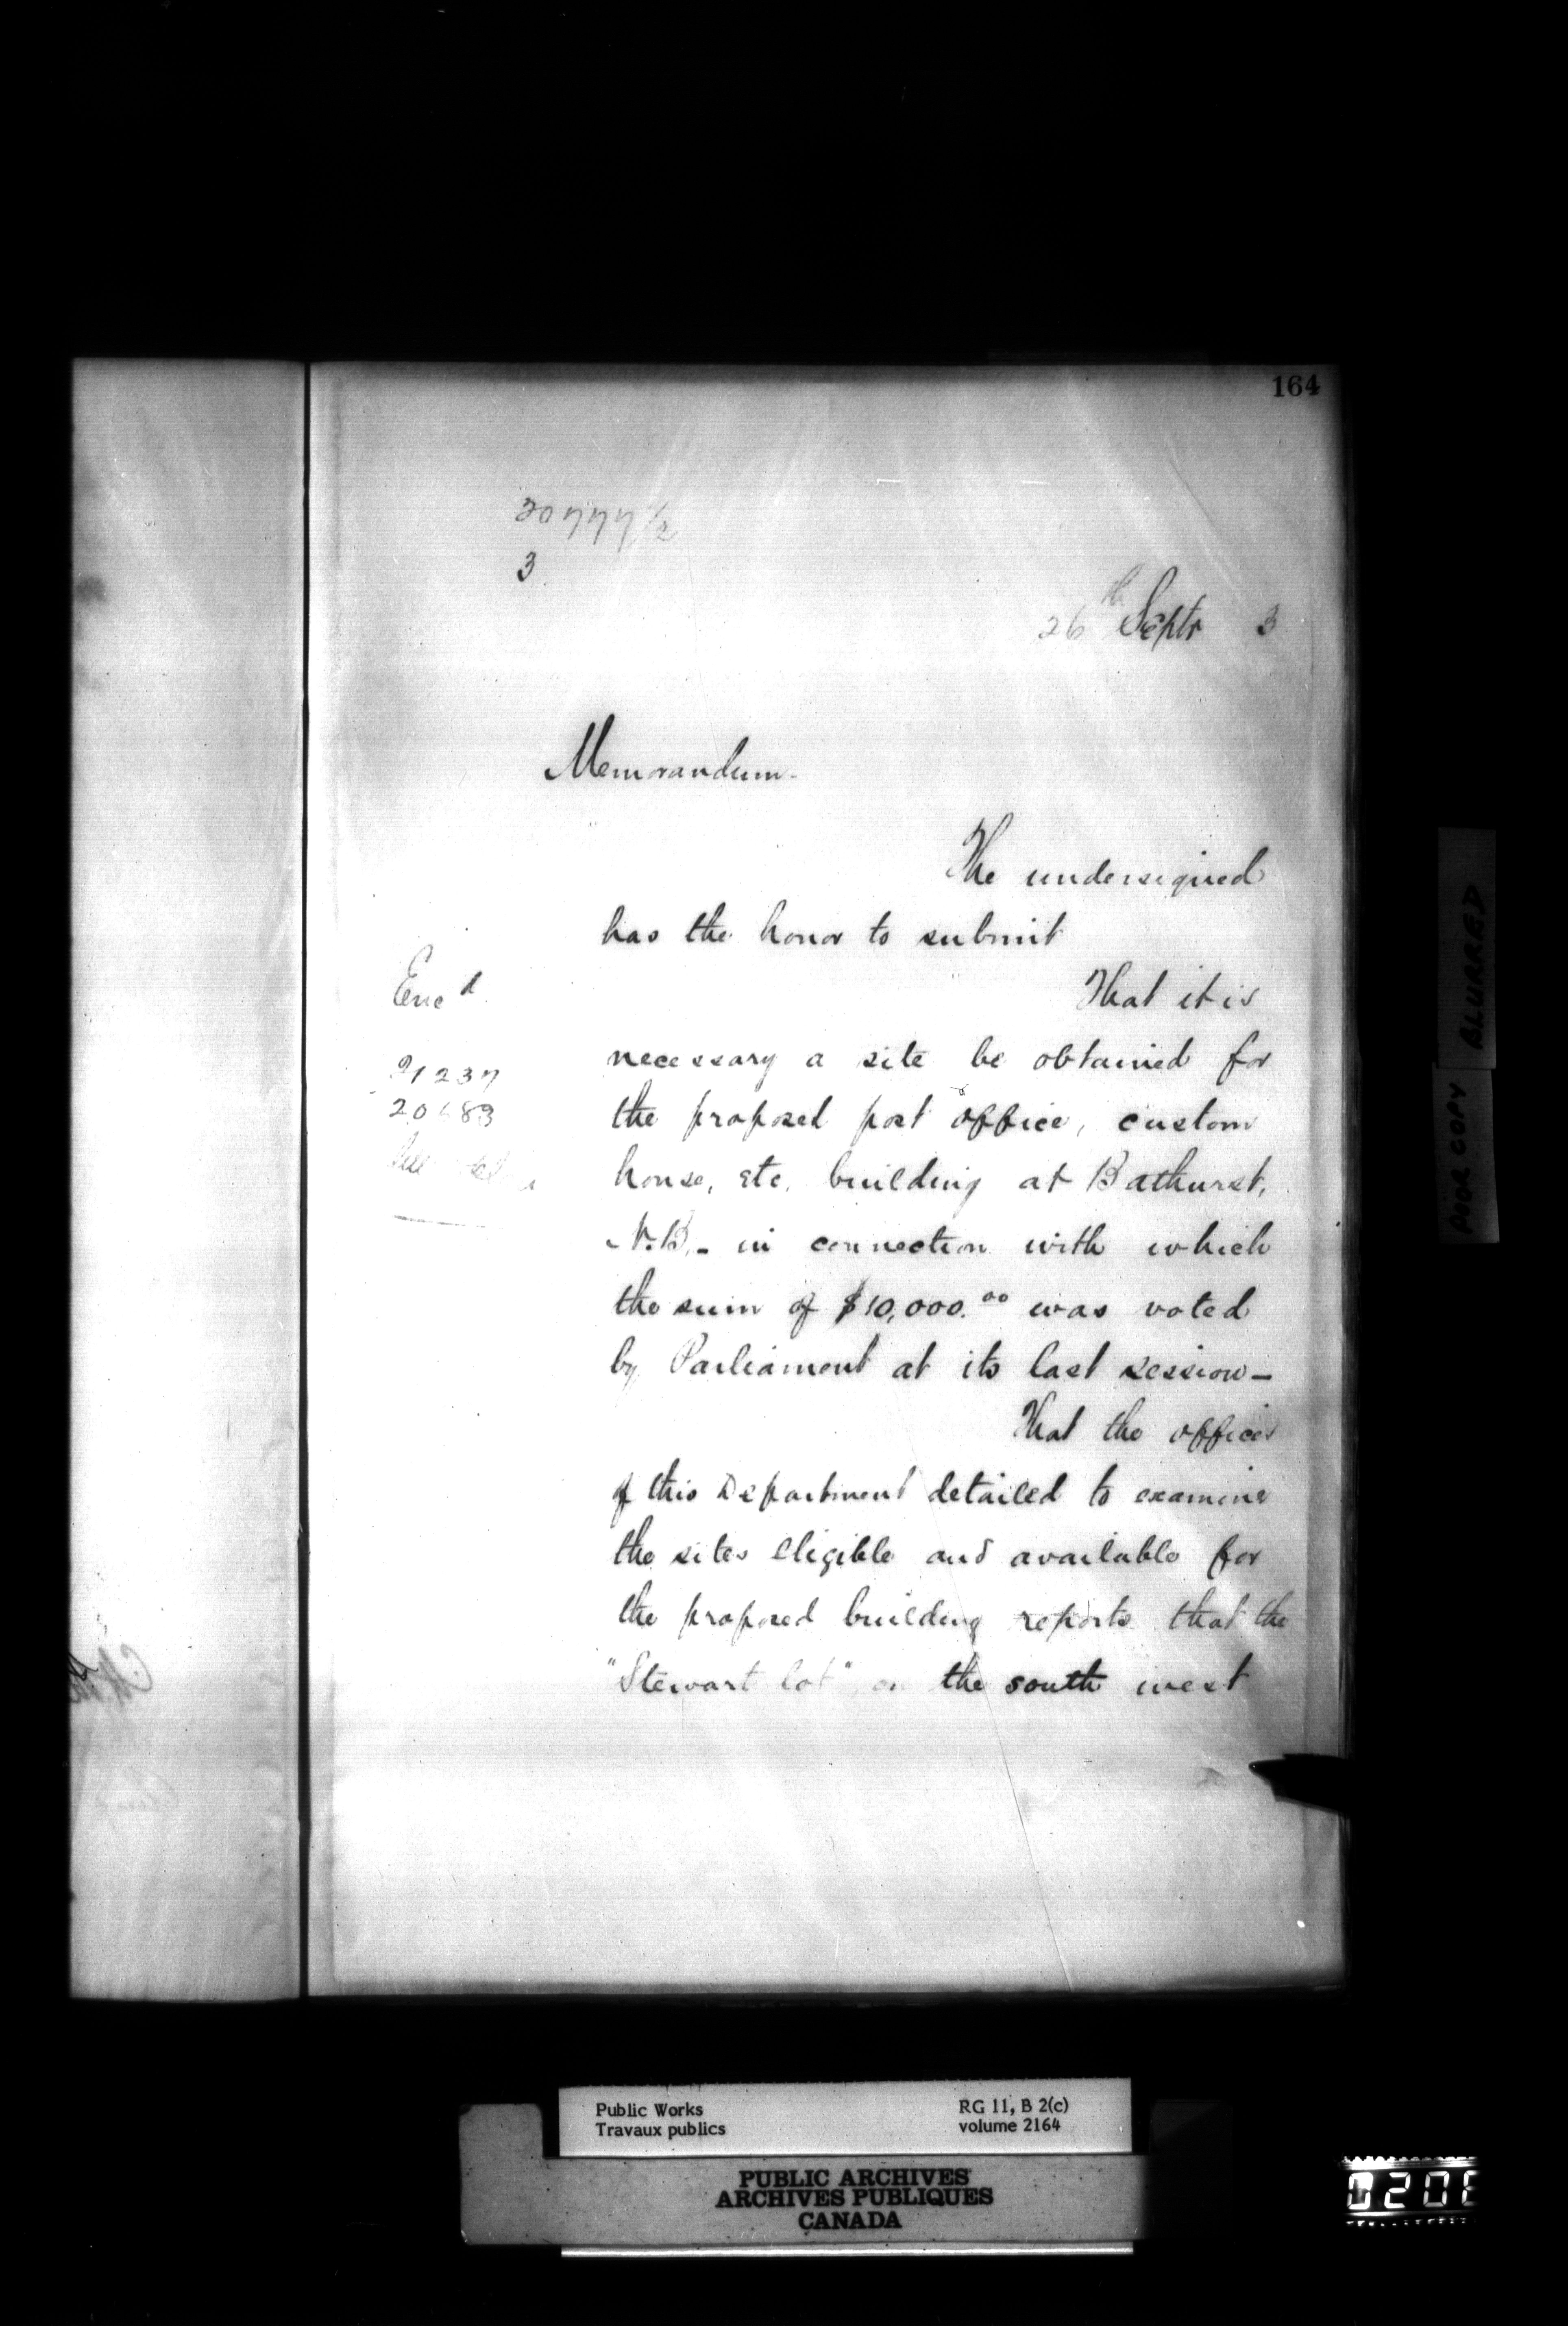 164
20777/2
3
26th Septr 3
Memorandum.
The undersigned
has the honor to submit
That it is
necessary a site be obtained for
the proposed post office, custom
house, etc. building at Bathurst,
N.B. - in connection with which
the sum of $10,000.00 was voted
by Parliament at its last session -
That the officer
of this Department detailed to examine
the sites eligible and available for
the proposed building reports that the
"Stewart lot", on the south west
Encd
21237
POOR COPY
BLURRED
Public Works
Travaux publics
RG 11, B 2(c)
volume 2164
PUBLIC ARCHIVES
ARCHIVES PUBLIQUES
CANADA